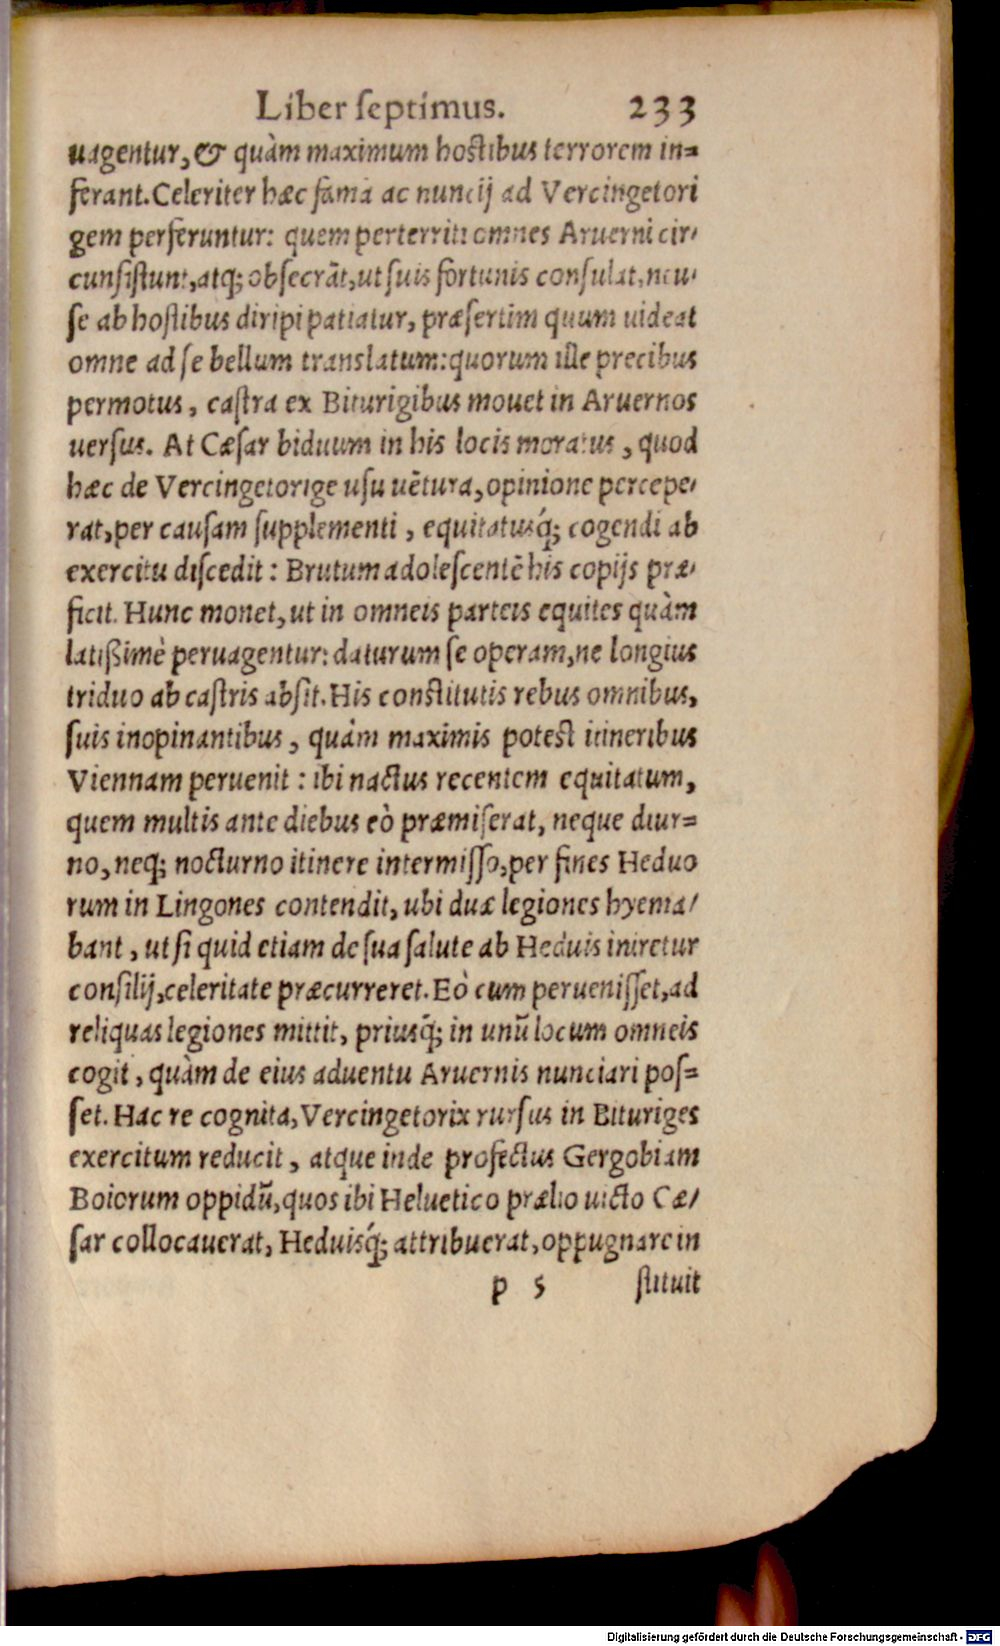 Liber septimus. 233
uagentur, & quàm maximum hostibus terrorem in=
ferant. Celeriter hæc fama ac nuncij ad Vercingetori
gem perferuntur: quem perterriti omnes Aruerni cir-
cunsistunt, atq; obsecrāt, ut suis fortunis consulat, neu-
se ab hostibus diripi patiatur, præsertim quum uideat
omne ad se bellum translatum: quorum ille precibus
permotus, castra ex Biturigibus mouet in Aruernos
uersus. At Cæsar biduum in his locis moratus, quod
hæc de Vercingetorige usu uētura, opinione percepe-
rat, per causam supplementi, equitatusq́; cogendi ab
exercitu discedit: Brutum adolescentē his copijs præ-
ficit. Hunc monet, ut in omneis parteis equites quàm
latißimè peruagentur: daturum se operam, ne longius
triduo ab castris absit. His constitutis rebus omnibus,
suis inopinantibus, quàm maximis potest itineribus
Viennam peruenit: ibi nactus recentem equitatum,
quem multis ante diebus eò præmiserat, neque diur=
no, neq; nocturno itinere intermisso, per fines Heduo
rum in Lingones contendit, ubi duæ legiones hyema/
bant, ut si quid etiam de sua salute ab Heduis iniretur
consilij, celeritate præcurreret. Eò cum peruenisset, ad
reliquas legiones mittit, priusq̃; in unū locum omneis
cogit, quàm de eius aduentu Aruernis nunciari pos=
set. Hac re cognita, Vercingetorix rursus in Bituriges
exercitum reducit, atque inde profectus Gergobiam
Boiorum oppidū, quos ibi Heluetico prælio uicto Cæ/
sar collocauerat, Heduisq́; attribuerat, oppugnare in
p 5 stituit
Digitalisierung gefördert durch die Deutsche Forschungsgemeinschaft - DFG